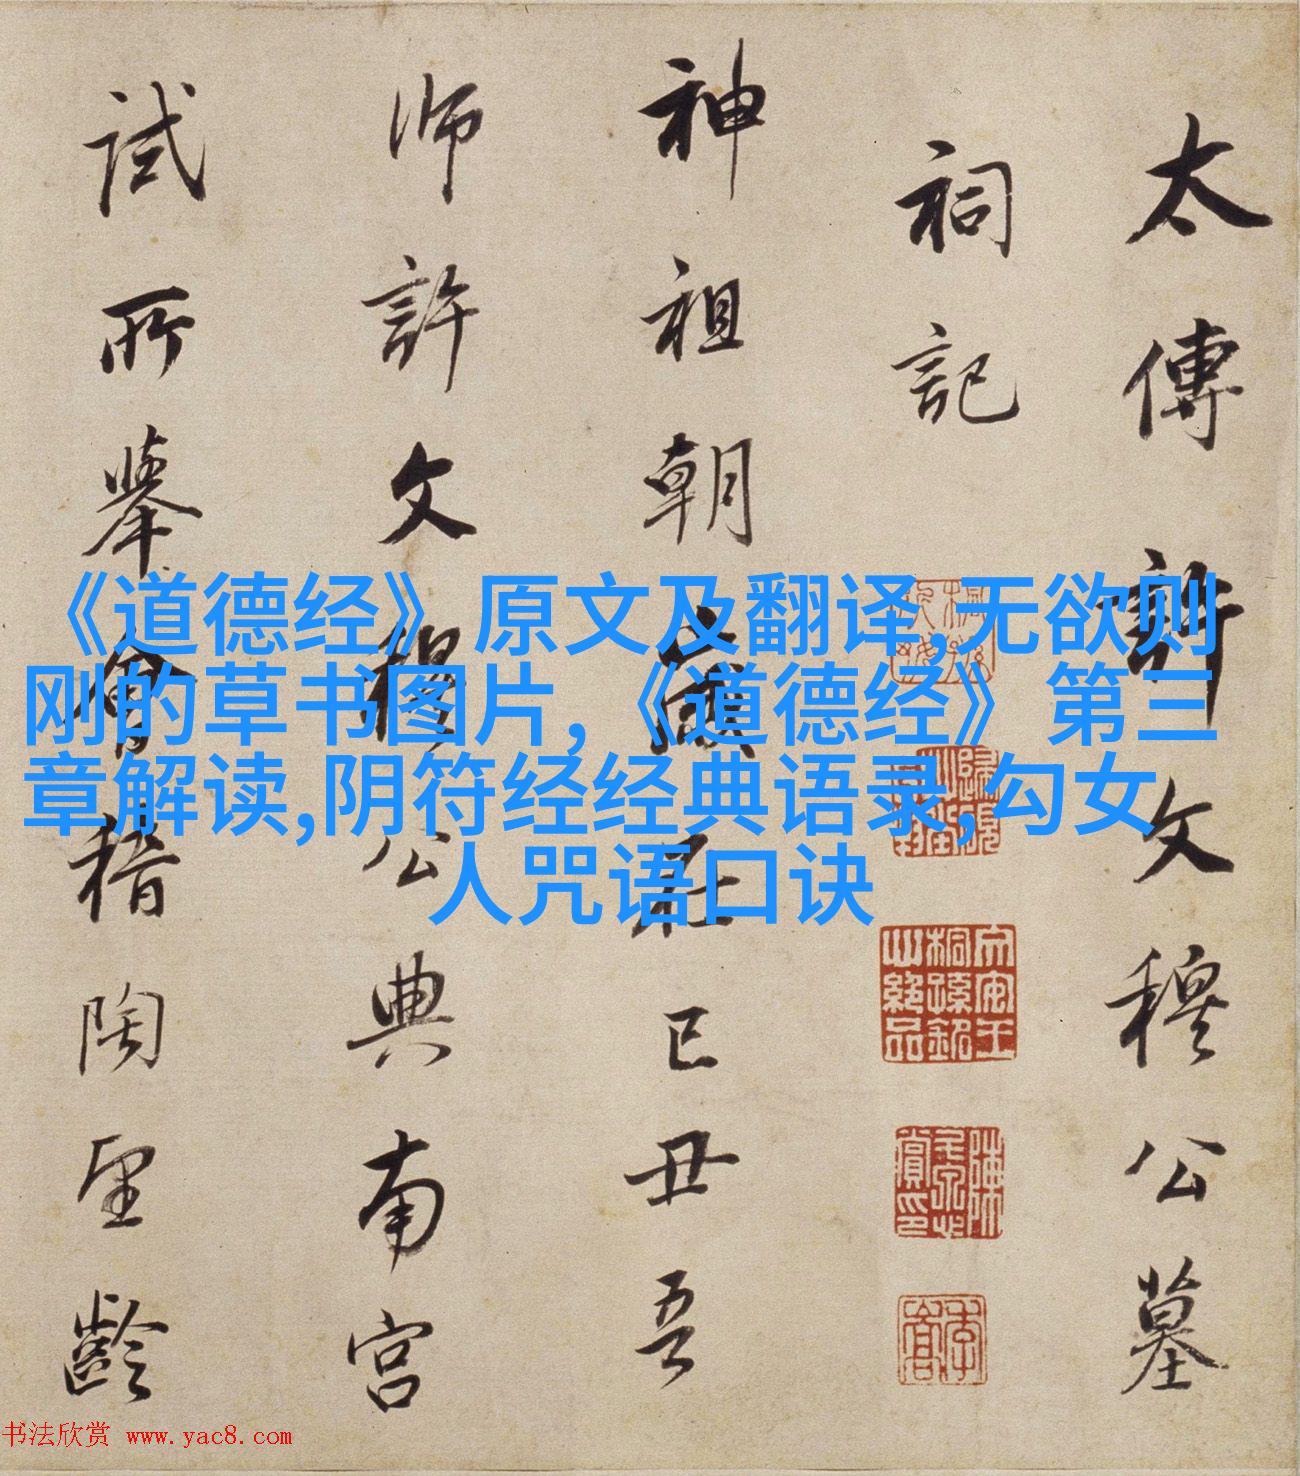 太傅許文穆公墓
祠記
神祖朝歲在已丑吾
師許文穆公典南宮
試所舉會稽陶望齡
《道德经》原文及翻译,无欲则
刚的草书图片,《道德经》第三
章解读,阴符经经典语录,勾女
人咒语口诀
书法欣赏 www.yac8.com